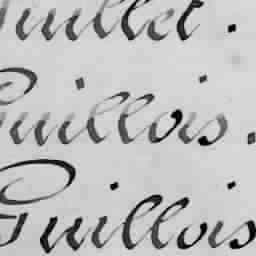 Guillet.
Guillois.
Guillois